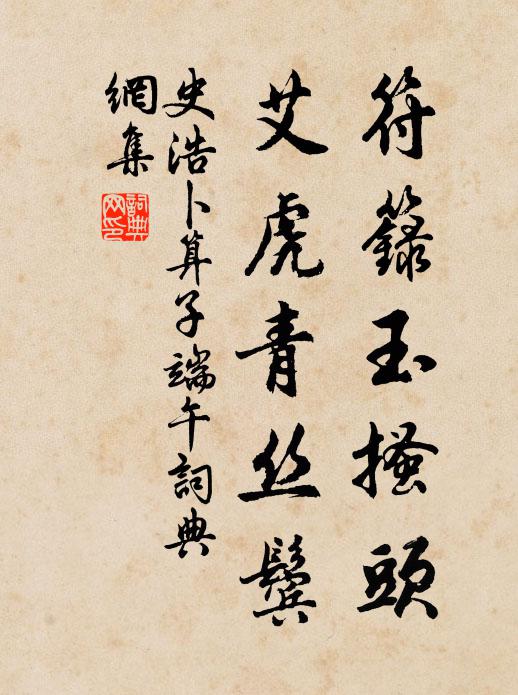 符籙玉搔頭
艾虎青丝鬓
史浩卜算子端午詞典
網集
詞典網印